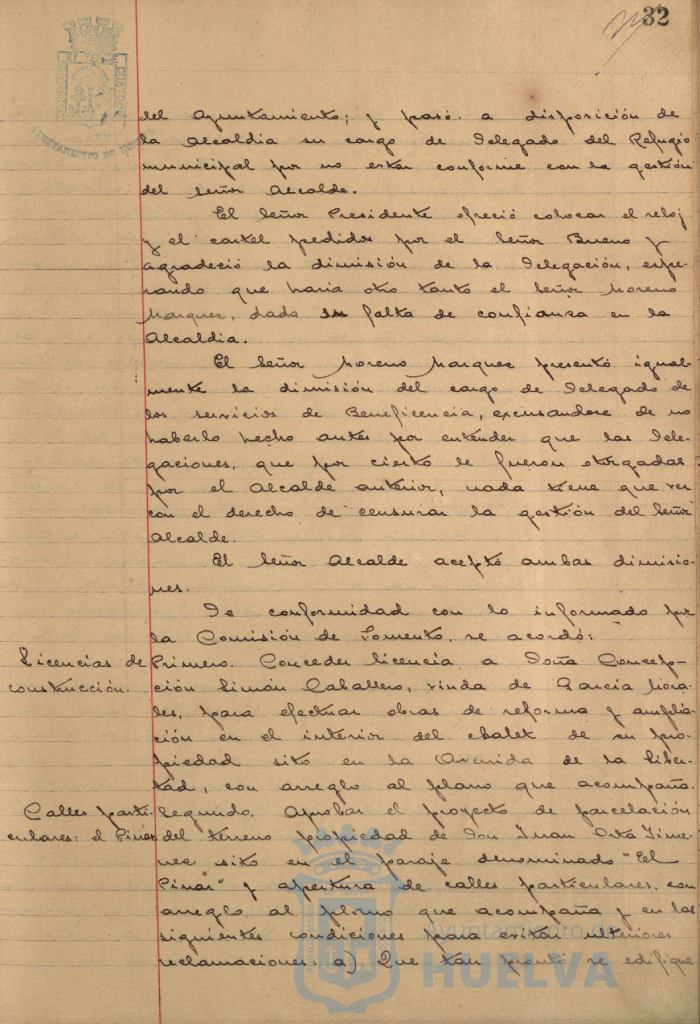 32
del Ayuntamiento; y pasó a disposición de
la Alcaldia su cargo de Delegado del Refugio
municipal por no estar conforme con la gestión
del Señor Alcalde.
El Señor Presidente ofreció colocar el reloj
y el cartel pedidos por el Señor Bueno y
agradeció la dimisión de la Delegación, espe-
rando que haria otro tanto el Señor Moreno
Marquez, dada su falta de confianza en la
Alcaldia.
El Señor Moreno Marquez presentó igual-
mente la dimisión del cargo de Delegado de
los servicios de Beneficencia, excusandose de no
haberlo hecho antes por entender que las Dele-
gaciones, que por cierto le fueron otorgadas
por el Alcalde anterior, nada tiene que ver
con el derecho de censurar la gestión del Señor
Alcalde.
El Señor Alcalde aceptó ambas dimisio-
nes.
De conformidad con lo informado por
la Comisión de Fomento, se acordó:
Licencias de
construcción.
Primero. Conceder licencia a Doña Concep-
ción Limón Caballero, viuda de Garcia Mora-
les, para efectuar obras de reforma y amplia-
ción en el interior del chalet de su pro-
piedad sito en la Avenida de la liber-
tad, con arreglo al plano que acompaña.
Calles parti-
culares: el Pinar
Segundo. Aprobar el proyecto de parcelación
del terreno propiedad de Don Juan Orta Jime-
nez sito en el paraje denominado "El
Pinar" y apertura de calles particulares, con
arreglo al plano que acompaña y en las
siguientes condiciones para evitar ulteriores
reclamaciones: a) Que tan pronto se edifique
Ayuntamiento de
HUELVA